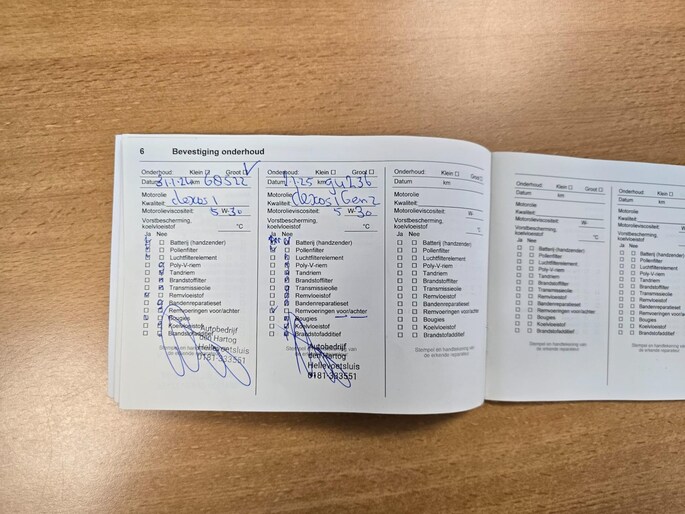 6 Bevestiging onderhoud
Onderhoud: Klein Groot
Datum 31-1-24 km 68522
Motorolie
Kwaliteit: dexos 1
Motorolieviscositeit: 5 W- 30
Vorstbescherming,
koelvloeistof °C
Ja Nee
Batterij (handzender)
Pollenfilter
Luchtfilterelement
Poly-V-riem
Tandriem
Brandstoffilter
Transmissieolie
Remvloeistof
Bandenreparatieset
Remvoeringen voor/achter
Bougies
Koelvloeistof
Brandstofadditief
Stempel en handtekening van
de erkende reparateur
Autobedrijf
den Hartog
Hellevoetsluis
0181-333551
Onderhoud: Klein Groot
Datum 1-25 km 94236
Motorolie
Kwaliteit: dexos 1 Gen 2
Motorolieviscositeit: 5 W- 30
Vorstbescherming,
koelvloeistof °C
Ja Nee
Batterij (handzender)
Pollenfilter
Luchtfilterelement
Poly-V-riem
Tandriem
Brandstoffilter
Transmissieolie
Remvloeistof
Bandenreparatieset
Remvoeringen voor/achter
Bougies
Koelvloeistof
Brandstofadditief
Stempel en handtekening van
de erkende reparateur
Autobedrijf
den Hartog
Hellevoetsluis
0181-333551
Onderhoud: Klein Groot
Datum km
Motorolie
Kwaliteit:
Motorolieviscositeit: W-
Vorstbescherming,
koelvloeistof °C
Ja Nee
Batterij (handzender)
Pollenfilter
Luchtfilterelement
Poly-V-riem
Tandriem
Brandstoffilter
Transmissieolie
Remvloeistof
Bandenreparatieset
Remvoeringen voor/achter
Bougies
Koelvloeistof
Brandstofadditief
Stempel en handtekening van
de erkende reparateur
Onderhoud: Klein Groot
Datum km
Motorolie
Kwaliteit:
Motorolieviscositeit: W-
Vorstbescherming,
koelvloeistof °C
Ja Nee
Batterij (handzender)
Pollenfilter
Luchtfilterelement
Poly-V-riem
Tandriem
Brandstoffilter
Transmissieolie
Remvloeistof
Bandenreparatieset
Remvoeringen voor/achter
Bougies
Koelvloeistof
Brandstofadditief
Stempel en handtekening van
de erkende reparateur
Onderhoud: Klein
Datum
Motorolie
Kwaliteit:
Motorolieviscositeit:
Vorstbescherming,
koelvloeistof
Ja Nee
Batterij (handzender)
Pollenfilter
Luchtfilterelement
Poly-V-riem
Tandriem
Brandstoffilter
Transmissieolie
Remvloeistof
Bandenreparatieset
Remvoeringen
Bougies
Koelvloeistof
Brandstofadditief
Stempel en handtekening
de erkende